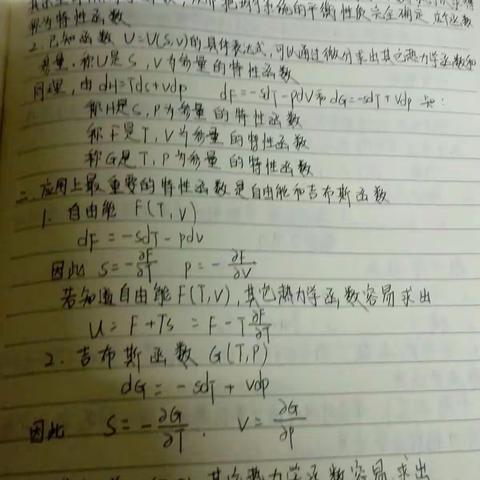 称为特性函数
2. 已知函数 U=U(S,V)的具体表达式,可以通过微分求出其它热力学函数和
参量,称U是S,V为参量的特性函数
同理,由 dH=Tds+vdp dF=-sdT-pdv和dG=-sdT+vdp 知:
称H是S,P为参量的特性函数
称F是T,V为参量的特性函数
称G是T,P为参量的特性函数
二、应用上最重要的特性函数是自由能和吉布斯函数
1. 自由能 F(T,V)
dF=-sdT-pdv
因此 S=-∂F/∂T P=-∂F/∂V
若知道自由能F(T,V),其它热力学函数容易求出
U=F+TS=F-T∂F/∂T
2. 吉布斯函数 G(T,P)
dG=-sdT+vdp
因此 S=-∂G/∂T. V=∂G/∂P
其它热力学函数容易求出